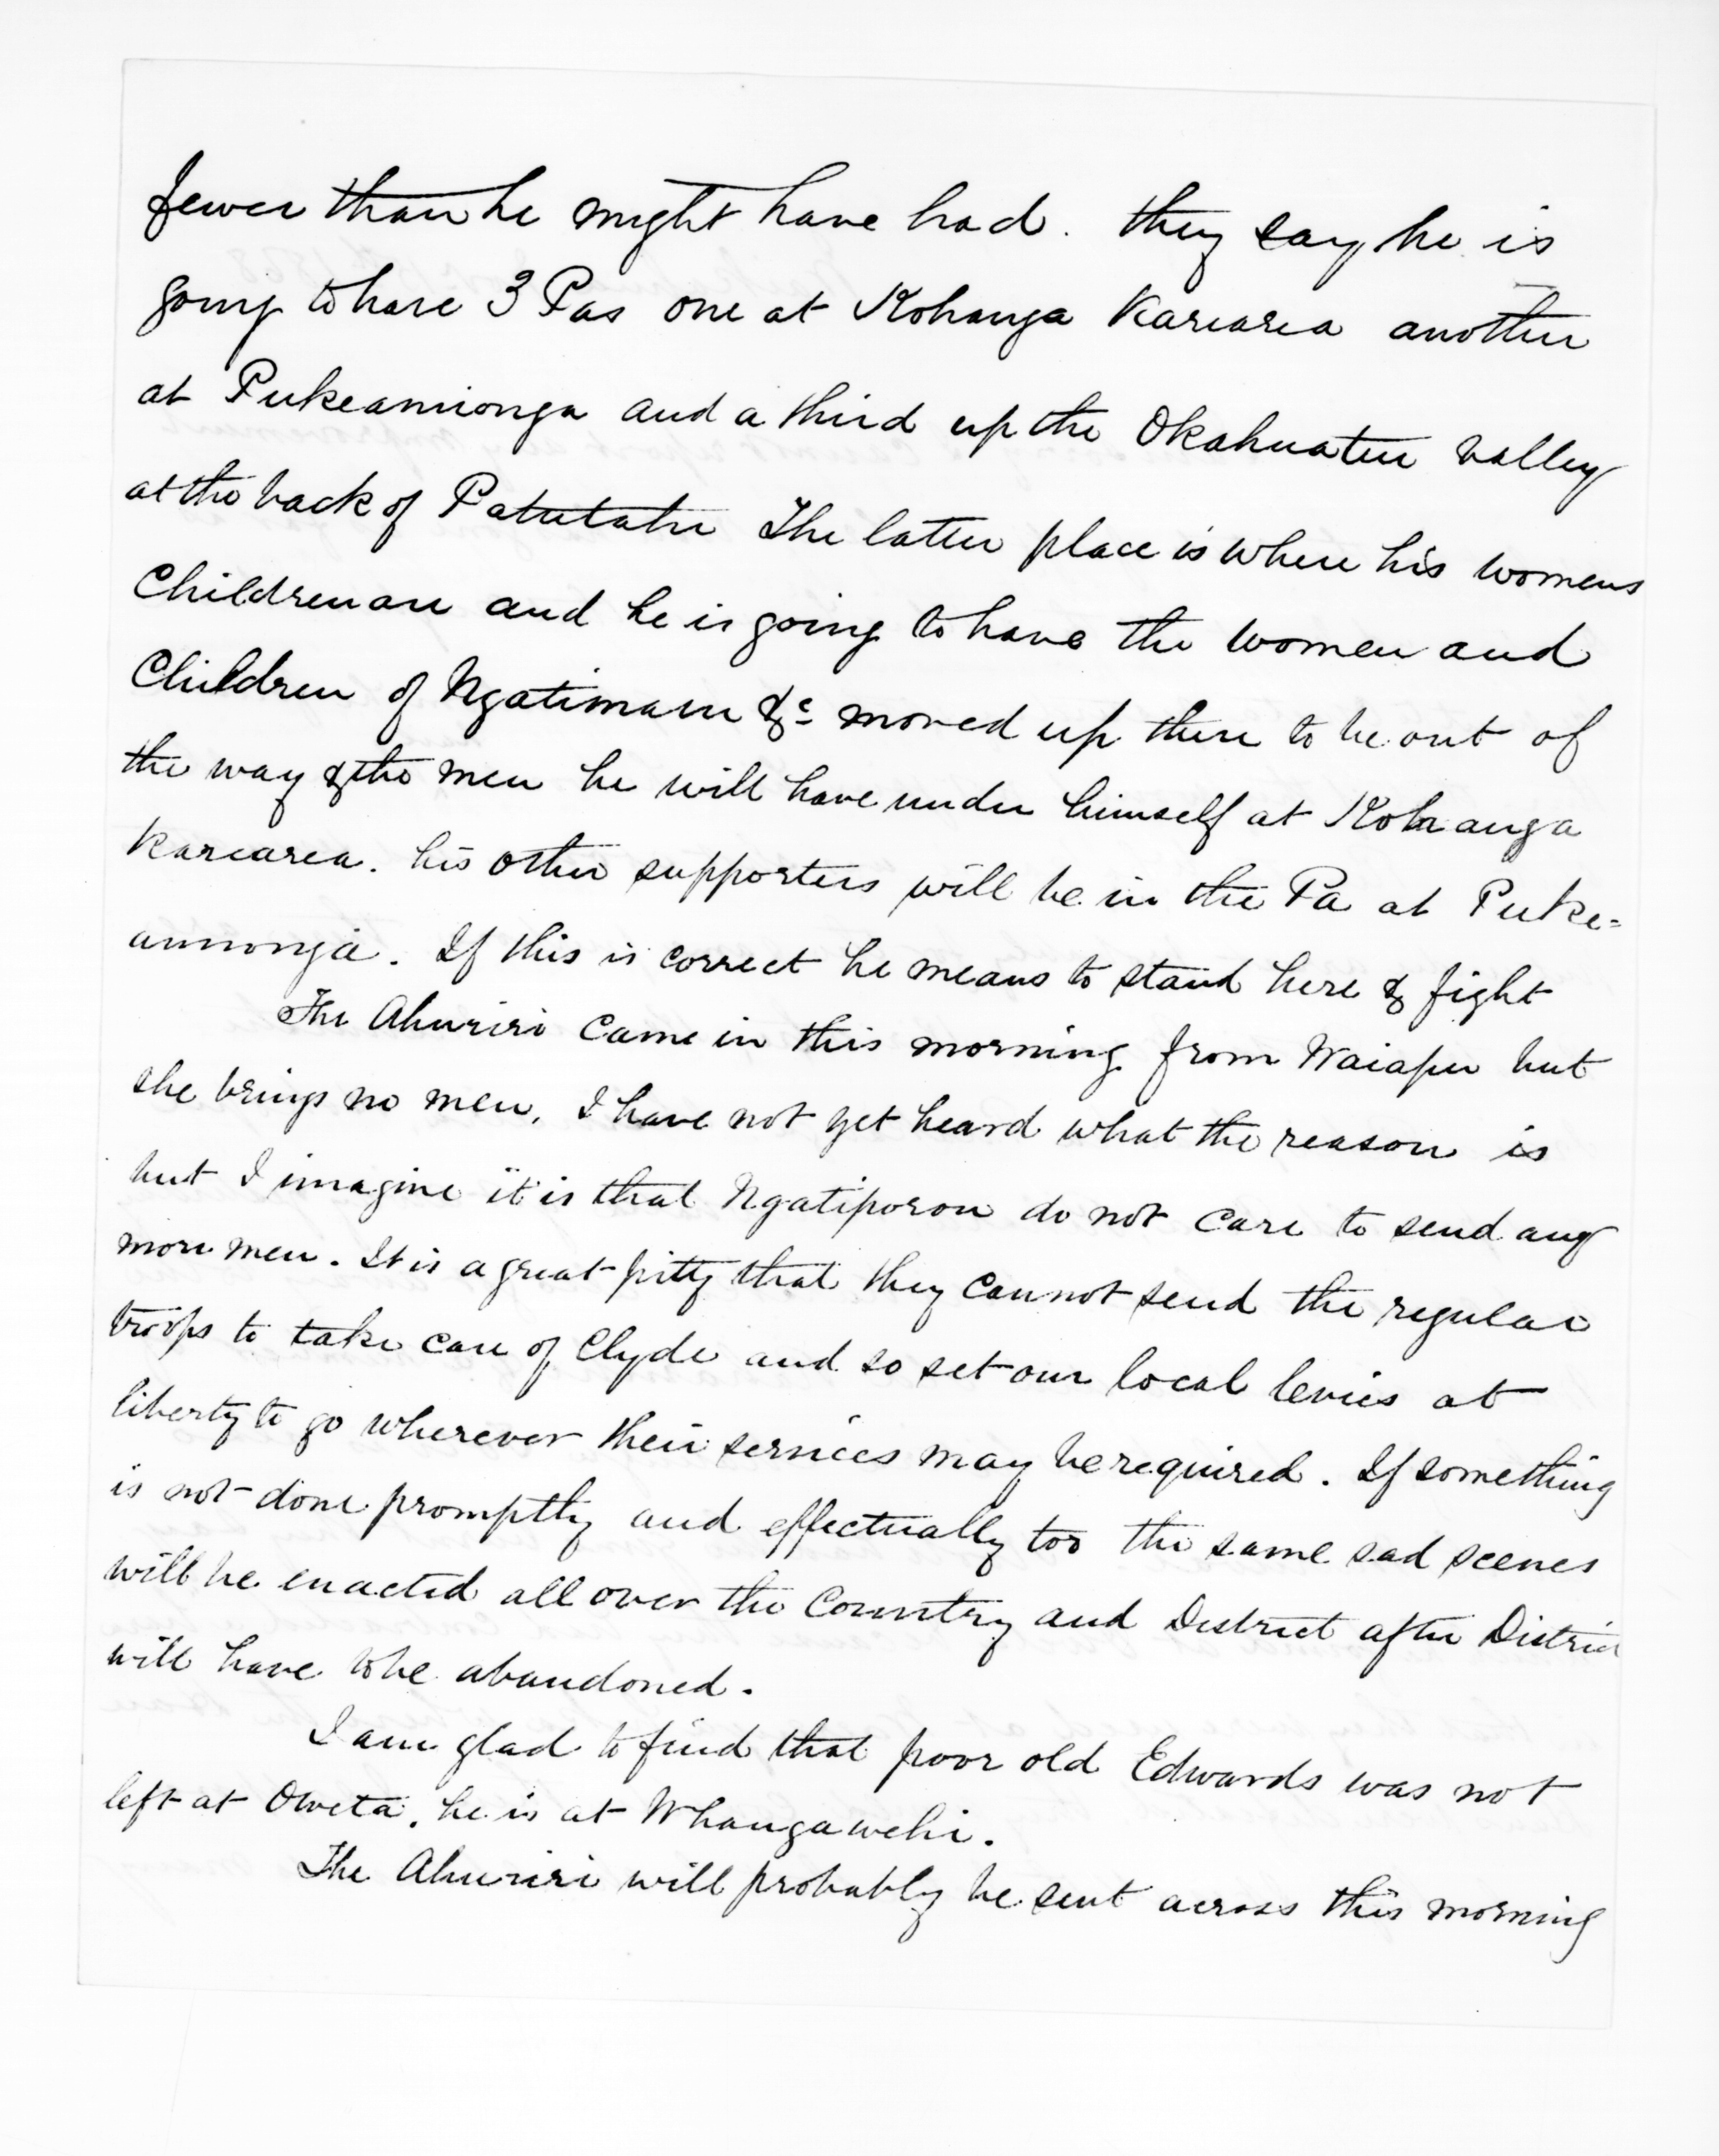 fewer than he might have had. they say he is
going to have 3 Pas one at Kohanga Kareaea another
at Pukeamionga and a third up the Okahuatiu valley
at the back of Patutahi The latter place is where his womens
Children are and he is going to have the women and
Children of Ngatimaru &c moved up there to be out of
the way & the men he will have under himself at Kohanga
Karearea. his other supporters will be in the Pa at Puke=
amionga. If this is correct he means to stand here & fight
The Ahuriri came in this morning from Waiapu but
she brings no men, I have not yet heard what the reason is
but I imagine it is that Ngatiporou do not care to send any
more men. It is a great pitty that they cannot send the regular
troops to take care of Clyde and so set our local levies at
liberty to go wherever their services may be required. If something
is not done promptly and effectually too the same sad scenes
will be enacted all over the Country and District after District
will have to be abandoned.
I am glad to find that poor old Edwards was not
left at Oweta, he is at Whangawehi.
The Ahuriri will probably be sent across this morning